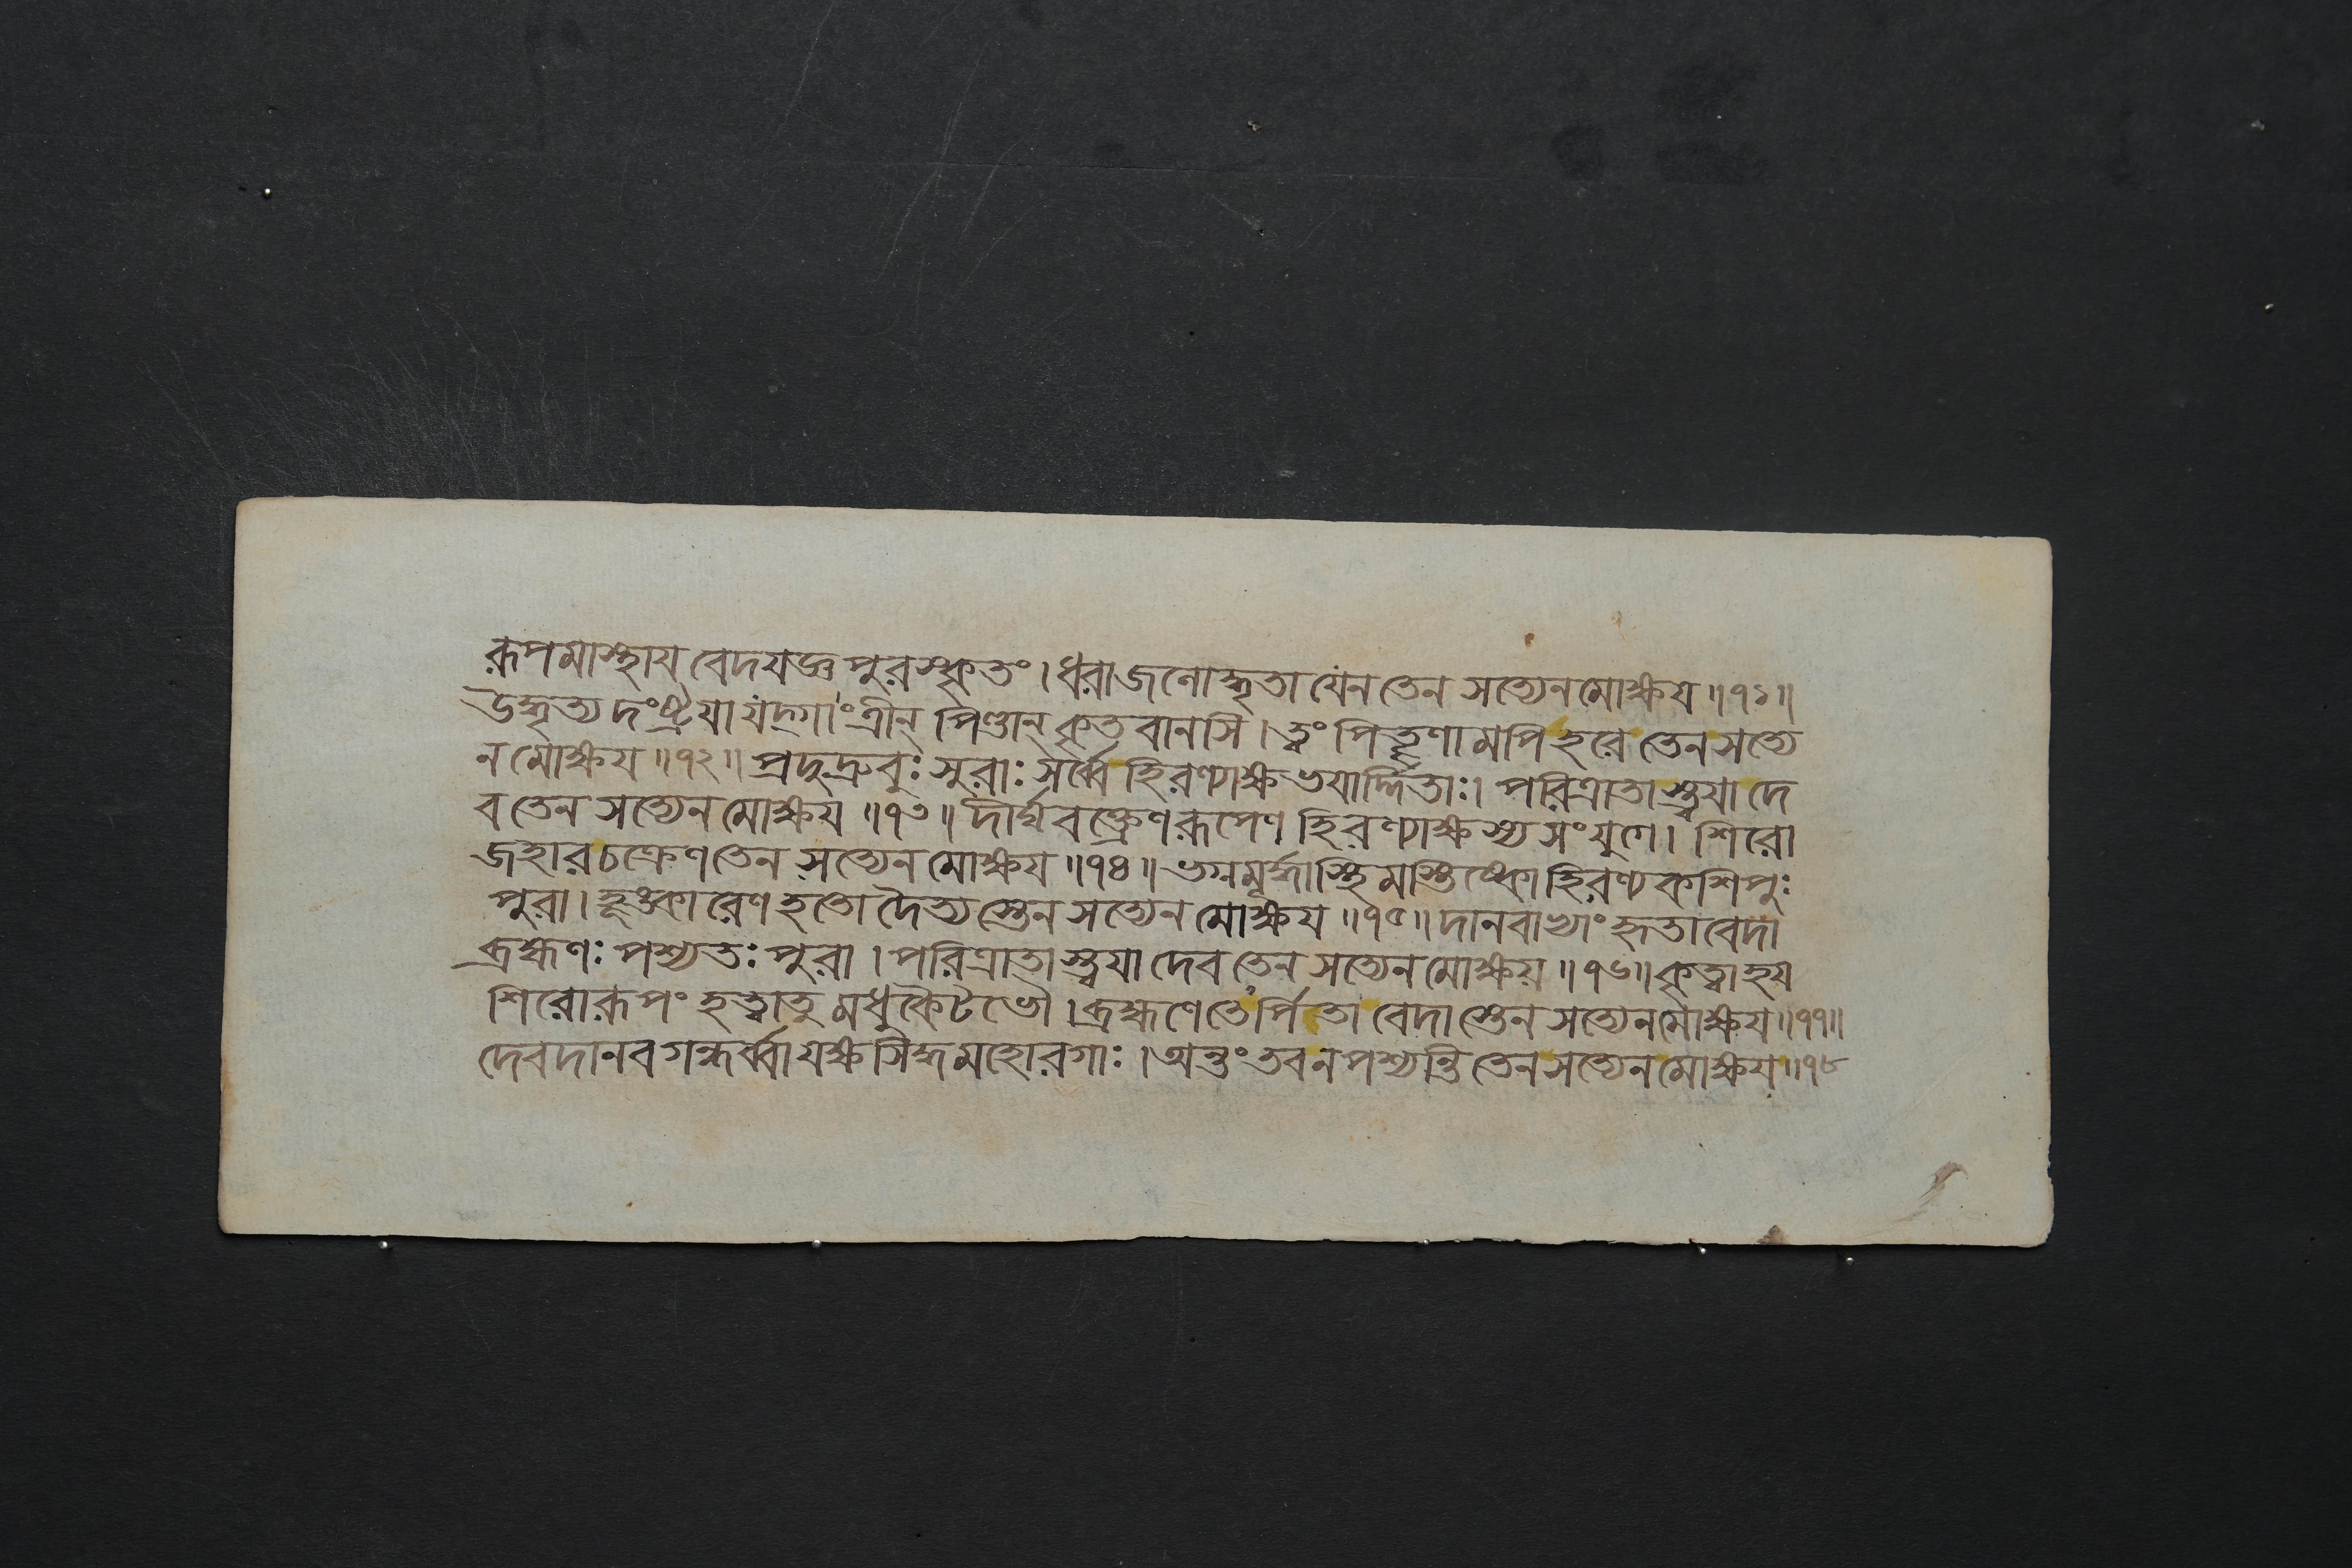 ৰূপমাস্থায বেদযজ্ঞপুৰস্কৃতং । ধৰাজনোদ্ধৃতা যেন তেন সত্যেন মোক্ষয ॥ ১১ ॥
উদ্ধৃত্য দংষ্ট্ৰযা যদ্গাং ত্ৰীন্ পিণ্ডান্ কৃতবানসি । ত্বং পিতৄণামপি হৰে তেন সত্যে
ন মোক্ষয ॥ ১২ ॥ প্ৰদুদ্ৰুবুঃ সুৰাঃ সৰ্ব্বে হিৰণ্যাক্ষভযাৰ্দ্দিতাঃ । পৰিত্ৰাতাস্ত্বযা দে
ব তেন সত্যেন মোক্ষয ॥ ১৩ ॥ দীৰ্ঘবক্ত্ৰেণ ৰূপেণ হিৰণ্যাক্ষস্য সংযুগে । শিৰো
জহাৰ চক্ৰেণ তেন সত্যেন মোক্ষয ॥ ১৪ ॥ ভগ্নমূৰ্দ্ধাস্থিমস্তিষ্কো হিৰণ্যকশিপুঃ
পুৰা । হূঙ্কাৰেণ হতো দৈত্যস্তেন সত্যেন মোক্ষয ॥ ১৫ ॥ দানবাখ্যাং হৃতা বেদা
ব্ৰহ্মণঃ পশ্যতঃ পুৰা । পৰিত্ৰাতাস্ত্বযা দেব তেন সত্যেন মোক্ষয ॥ ১৬ ॥ কৃত্বা হয
শিৰোৰূপং হত্বা তু মধুকৈটভৌ । ব্ৰহ্মণে তেঽৰ্পিতা বেদাস্তেন সত্যেন মোক্ষয ॥ ১৭ ॥
দেবদানবগন্ধৰ্ব্বা যক্ষসিদ্ধমহোৰগাঃ । অন্তং তব ন পশ্যন্তি তেন সত্যেন মোক্ষয ॥ ১৮